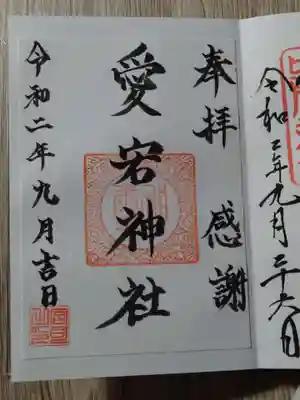 令和二年九月二十六日
奉拝 感謝
愛宕神社
令和二年九月吉日